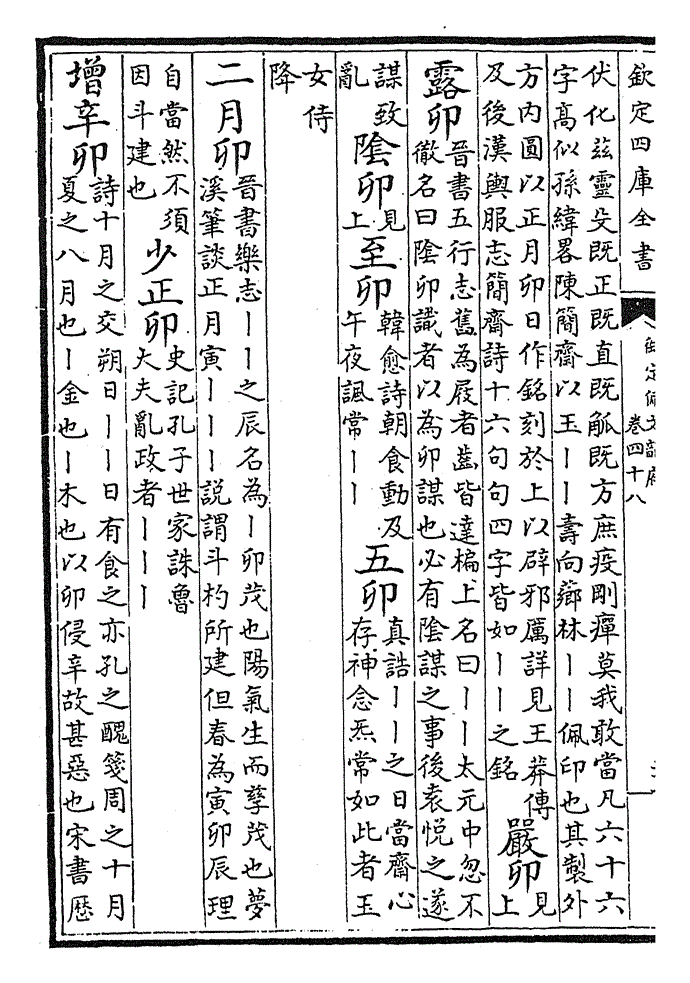 欽定四庫全書
卷四十八
伏化茲靈殳既正既直既觚既方庶疫剛癉莫我敢當凡六十六
字高似孫緯畧陳簡齋以玉丨丨壽向薌林丨丨佩印也其製外
方内圓以正月卯日作銘刻於上以辟邪厲詳見王莽傳
及後漢輿服志簡齋詩十六句句四字皆如丨丨之銘
嚴卯
見
上
露卯
晉書五行志舊為屐者齒皆達楄上名曰丨丨太元中忽不
徹名曰隂卯識者以為卯謀也必有隂謀之事後袁悅之遂
謀致
亂
隂卯
見
上
至卯
韓愈詩朝食動及
午夜諷常丨丨
五卯
真誥丨丨之日當齋心
存神念炁常如此者玉
女侍
降
二月卯
晉書樂志丨丨之辰名為丨卯茂也陽氣生而孳茂也夢
溪筆談正月寅丨丨丨説謂斗杓所建但春為寅卯辰理
自當然不須
因斗建也
少正卯
史記孔子世家誅魯
大夫亂政者丨丨丨
增辛卯
詩十月之交朔日丨丨日有食之亦孔之醜箋周之十月
夏之八月也丨金也丨木也以卯侵辛故甚惡也宋書歴